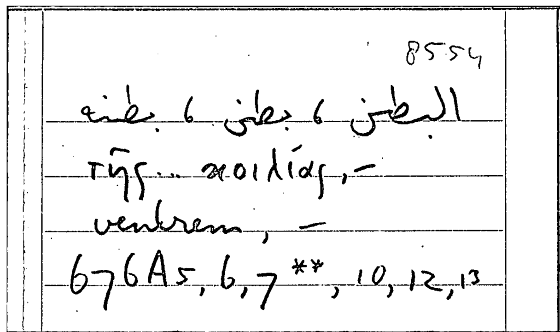 8554
البطن ، بطن ، بطنه
τῆς .. κοιλίας, –
ventrem, –
676A5, 6, 7**, 10, 12, 13